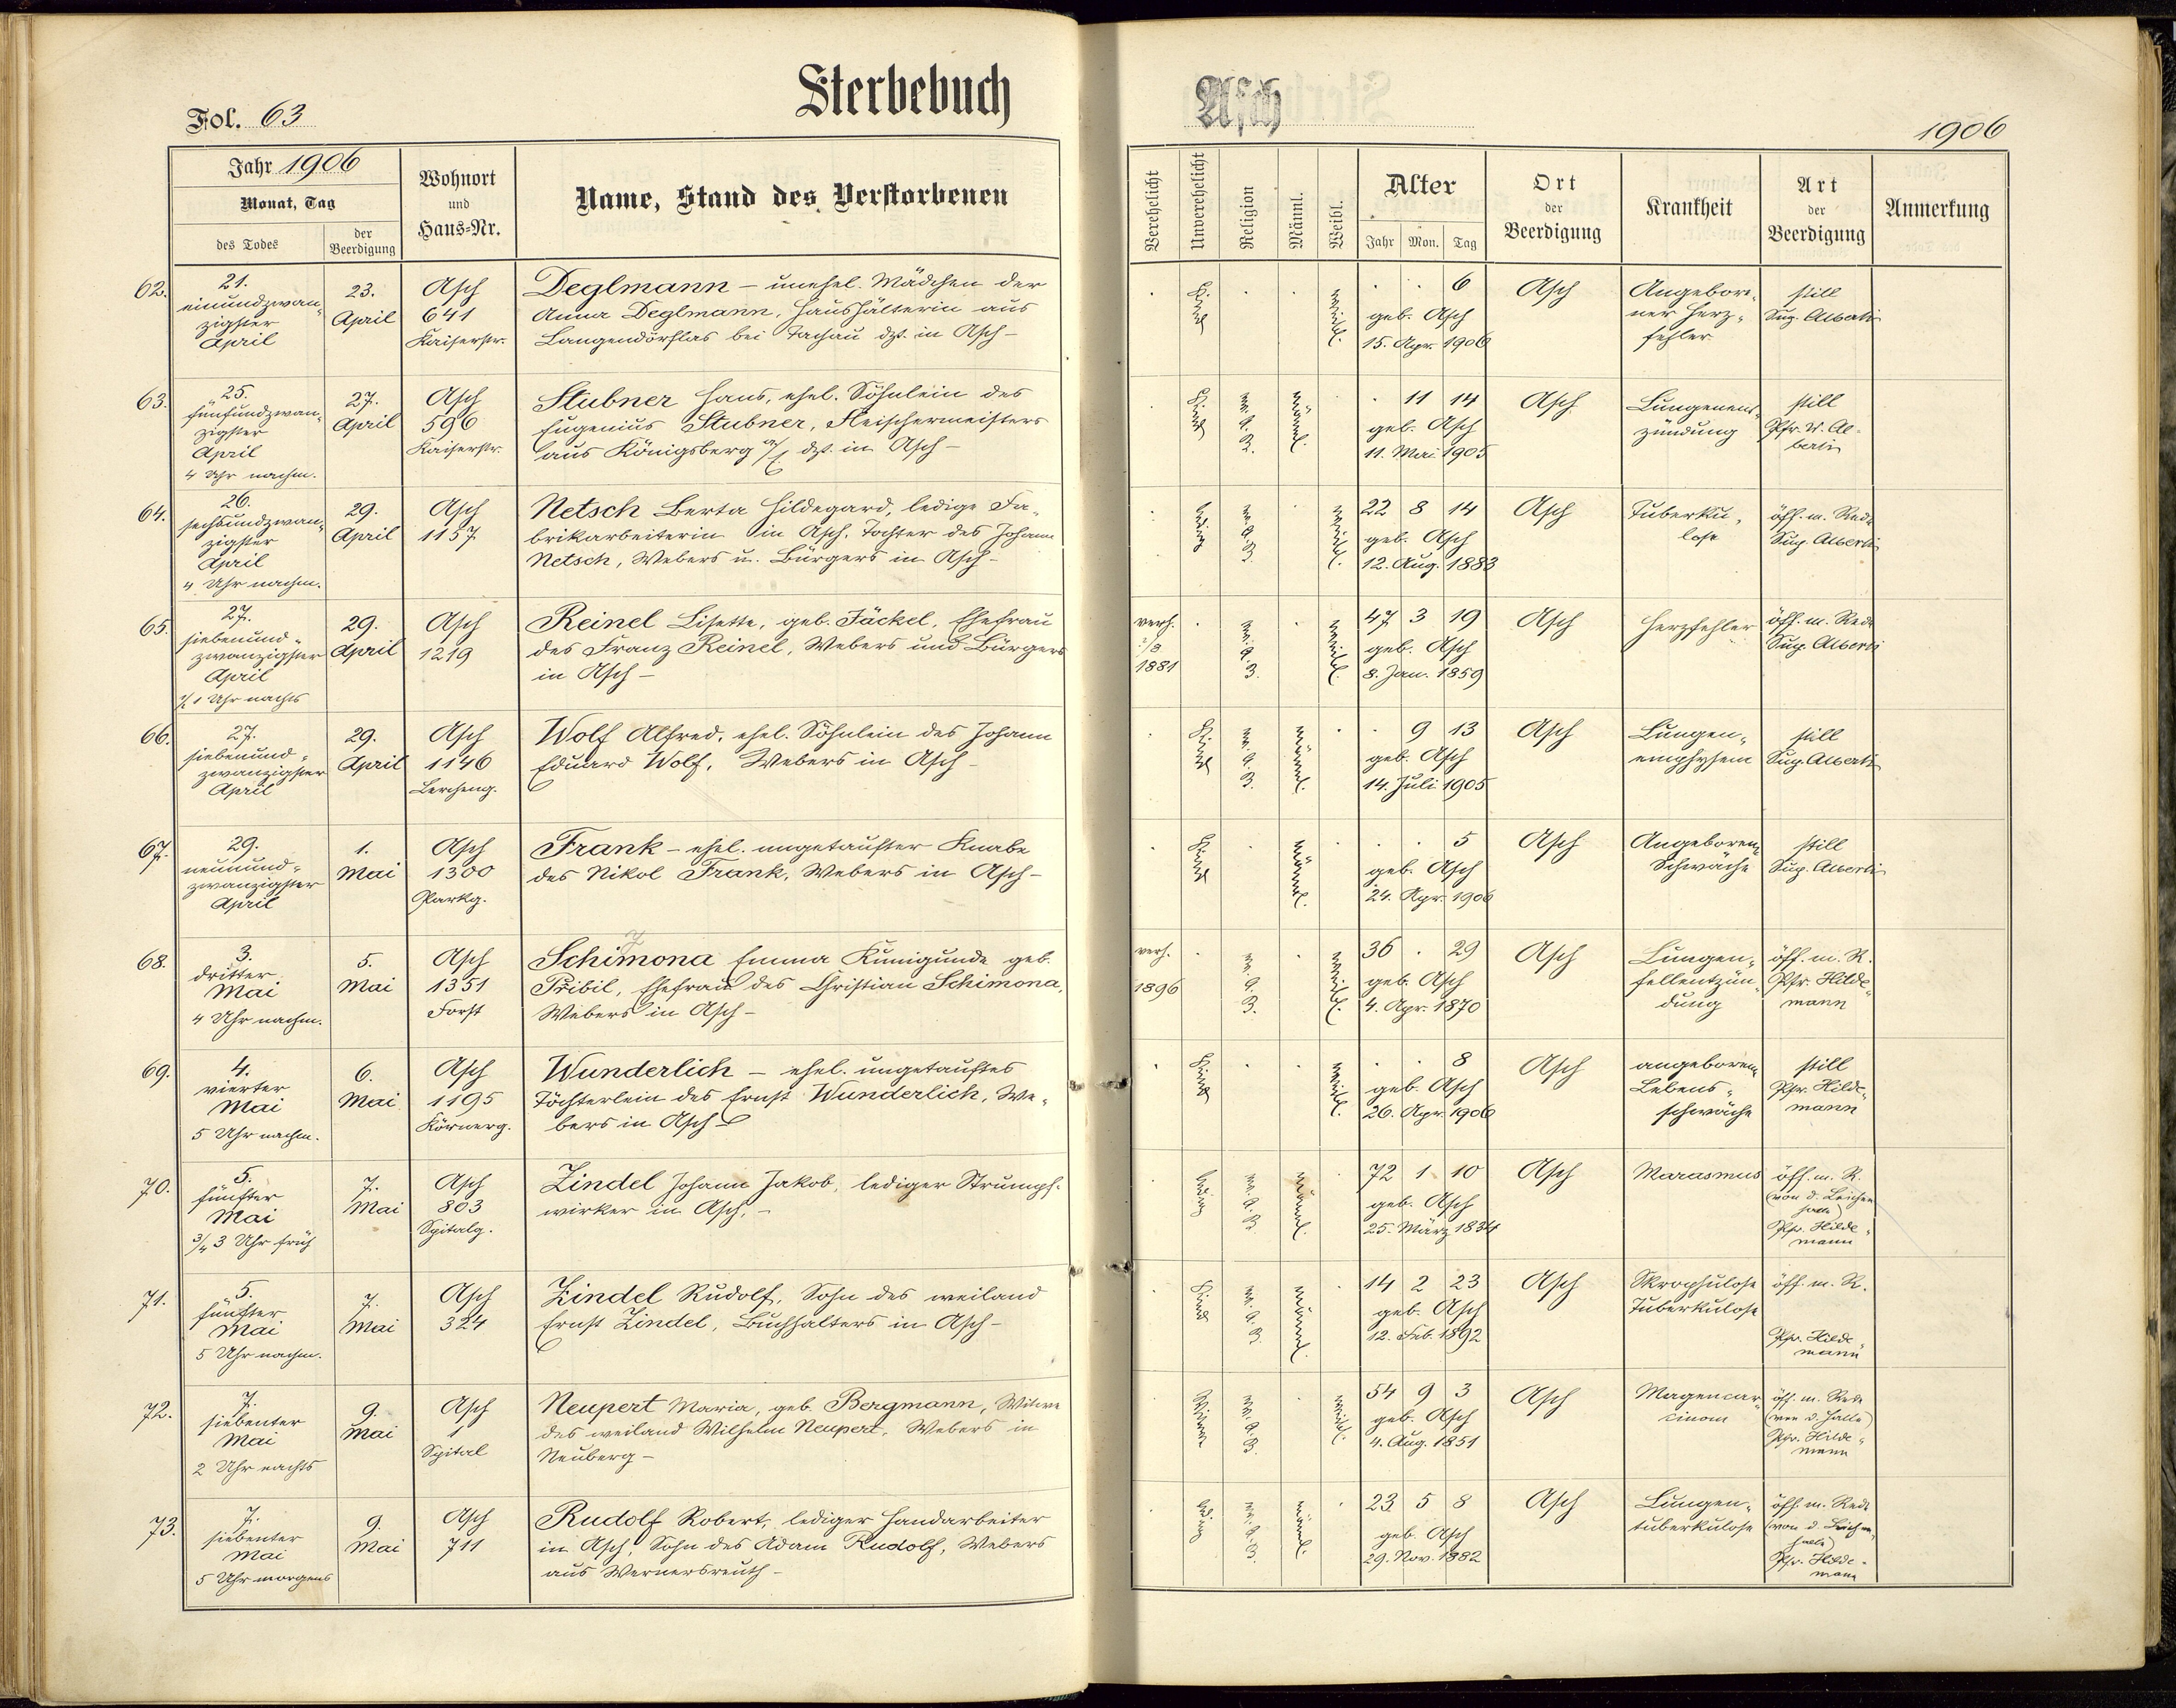 Sterbebuch
Asch
Fol. 63
1906
Jahr 1906
Monat, Tag
des Todes
der Beerdigung
Wohnort und Haus=Nr.
Name, Stand des Verstorbenen
Verehelicht
Unverehelicht
Religion
Männl.
Weibl.
Alter
Jahr Mon. Tag
Ort der Beerdigung
Krankheit
Art der Beerdigung
Anmerkung
62.
21.
einundzwan-
zigster
April
23.
April
Asch
641
Kaiserstr.
Deglmann – unehel. Mädchen der
Anna Deglmann, Haushälterin aus
Langendörflas bei Tachau dzt. in Asch –
Kind
weibl.
6
geb. Asch
15. Apr. 1906
Asch
Angebore-
ner Herz-
fehler
still
Sup. Alberti
63.
25.
fünfundzwan-
zigster
April
4 Uhr nachm.
27.
April
Asch
596
Kaiserstr.
Stubner Hans, ehel. Söhnlein des
Eugenius Stubner, Fleischermeisters
aus Königsberg a/ dzt. in Asch –
Kind
ev. A. B.
männl.
11 14
geb. Asch
11. Mai 1905
Asch
Lungenent-
zündung
still
Pfr. V. Al-
berti
64.
26.
sechsundzwan-
zigster
April
4 Uhr nachm.
29.
April
Asch
1157
Netsch Berta Hildegard, ledige Fa-
brikarbeiterin in Asch, Tochter des Johann
Netsch, Webers u. Bürgers in Asch –
ledig
ev. A. B.
weibl.
22 8 14
geb. Asch
12. Aug. 1883
Asch
Tuberku-
lose
öff. m. Rede
Sup. Alberti
65.
27.
siebenund-
zwanzigster
April
1/2 1 Uhr nachts
29.
April
Asch
1219
Reinel Lisette, geb. Jäckel, Ehefrau
des Franz Reinel, Webers und Bürgers
in Asch –
verh.
/8
1881
ev. A. B.
weibl.
47 3 19
geb. Asch
8. Jan. 1859
Asch
Herzfehler
öff. m. Rede
Sup. Alberti
66.
27.
siebenund-
zwanzigster
April
29.
April
Asch
1146
Lercheng.
Wolf Alfred, ehel. Söhnlein des Johann
Eduard Wolf, Webers in Asch –
Kind
ev. A. B.
männl.
9 13
geb. Asch
14. Juli 1905
Asch
Lungen-
emphysem
still
Sup. Alberti
67.
29.
neunund-
zwanzigster
April
1.
Mai
Asch
1300
Parkg.
Frank – ehel. ungetaufter Knabe
des Nikol Frank, Webers in Asch –
Kind
männl.
5
geb. Asch
24. Apr. 1906
Asch
Angeborene
Schwäche
still
Sup. Alberti
68.
3.
dritter
Mai
4 Uhr nachm.
5.
Mai
Asch
1351
Forst
Schimona Emma Kunigunde geb.
Přibil, Ehefrau des Christian Schimona,
Webers in Asch –
verh.
1896
ev. A. B.
weibl.
36 . 29
geb. Asch
4. Apr. 1870
Asch
Lungen-
fellentzün-
dung
öff. m. R.
Pfr. Hilde-
mann
69.
4.
vierter
Mai
5 Uhr nachm.
6.
Mai
Asch
1195
Körnerg.
Wunderlich – ehel. ungetauftes
Töchterlein des Ernst Wunderlich, We-
bers in Asch –
Kind
weibl.
8
geb. Asch
26. Apr. 1906
Asch
angeborene
Lebens-
schwäche
still
Pfr. Hilde-
mann
70.
5.
fünfter
Mai
3/4 3 Uhr früh
7.
Mai
Asch
803
Spitalg.
Zindel Johann Jakob, lediger Strumpf-
wirker in Asch. –
ledig
ev. A. B.
männl.
72 1 10
geb. Asch
25. März 1834
Asch
Marasmus
öff. m. R.
(von d. Leichen
halle)
Pfr. Hilde-
mann
71.
5.
fünfter
Mai
5 Uhr nachm.
7.
Mai
Asch
324
Zindel Rudolf, Sohn des weiland
Ernst Zindel, Buchhalters in Asch –
Kind
ev. A. B.
männl.
14 2 23
geb. Asch
12. Feb. 1892
Asch
Skrophulose
Tuberkulose
öff. m. R.
Pfr. Hilde-
mann
72.
7.
siebenter
Mai
2 Uhr nachts
9.
Mai
Asch
1
Spital
Neupert Maria, geb. Bergmann, Witwe
des weiland Wilhelm Neupert, Webers in
Neuberg –
Witwe
ev. A. B.
weibl.
54 9 3
geb. Asch
4. Aug. 1851
Asch
Magencar-
cinom
öff. m. Rede
(von d. Halle)
Pfr. Hilde-
mann
73.
7.
siebenter
Mai
5 Uhr morgens
9.
Mai
Asch
711
Rudolf Robert, lediger Handarbeiter
in Asch, Sohn des Adam Rudolf, Webers
aus Wernersreuth –
ledig
ev. A. B.
männl.
23 5 8
geb. Asch
29. Nov. 1882
Asch
Lungen-
tuberkulose
öff. m. Rede
(von d. Leichen-
halle)
Pfr. Hilde-
mann